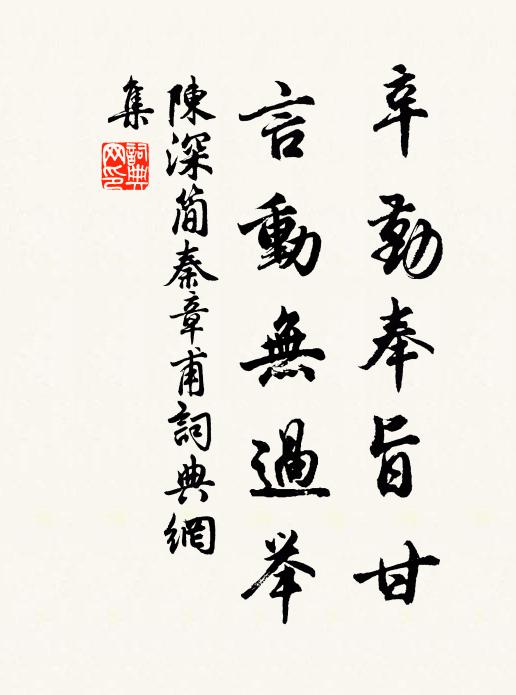 辛勤奉旨甘
言動無過举
陳深简秦章甫詞典網
集
詞典
网印